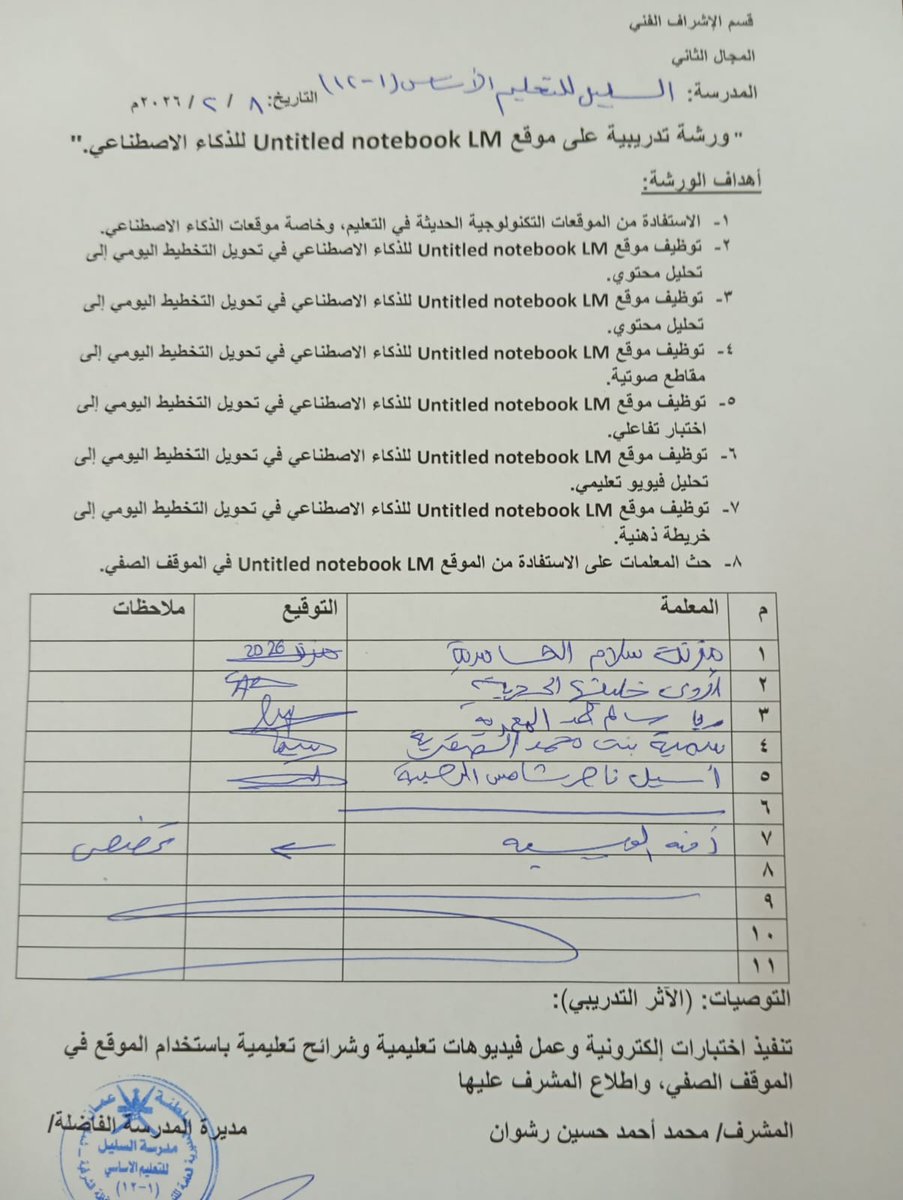 قسم الإشراف الفني
المجال الثاني
المدرسة: السليل للتعليم الأساسي (١-١٢) التاريخ: ٨ / ٢ / ٢٠٢٦م
"ورشة تدريبية على موقع Untitled notebook LM للذكاء الاصطناعي."
أهداف الورشة:
١- الاستفادة من الموقعات التكنولوجية الحديثة في التعليم، وخاصة موقعات الذكاء الاصطناعي.
٢- توظيف موقع Untitled notebook LM للذكاء الاصطناعي في تحويل التخطيط اليومي إلى
تحليل محتوي.
٣- توظيف موقع Untitled notebook LM للذكاء الاصطناعي في تحويل التخطيط اليومي إلى
تحليل محتوي.
٤- توظيف موقع Untitled notebook LM للذكاء الاصطناعي في تحويل التخطيط اليومي إلى
مقاطع صوتية.
٥- توظيف موقع Untitled notebook LM للذكاء الاصطناعي في تحويل التخطيط اليومي إلى
اختبار تفاعلي.
٦- توظيف موقع Untitled notebook LM للذكاء الاصطناعي في تحويل التخطيط اليومي إلى
تحليل فيويو تعليمي.
٧- توظيف موقع Untitled notebook LM للذكاء الاصطناعي في تحويل التخطيط اليومي إلى
خريطة ذهنية.
٨- حث المعلمات على الاستفادة من الموقع Untitled notebook LM في الموقف الصفي.
م المعلمة التوقيع ملاحظات
١ سلام 2026
٢ أروى
٣ سالم
٤ سمية بنت محمد
٥ أسيل ناصر
٦
٧
٨
٩
١٠
١١
التوصيات: (الآثر التدريبي):
تنفيذ اختبارات إلكترونية وعمل فيديوهات تعليمية وشرائح تعليمية باستخدام الموقع في
الموقف الصفي، واطلاع المشرف عليها
المشرف/ محمد أحمد حسين رشوان مديرة المدرسة الفاضلة/
مدرسة السليل
للتعليم الاساسي
(١-١٢)